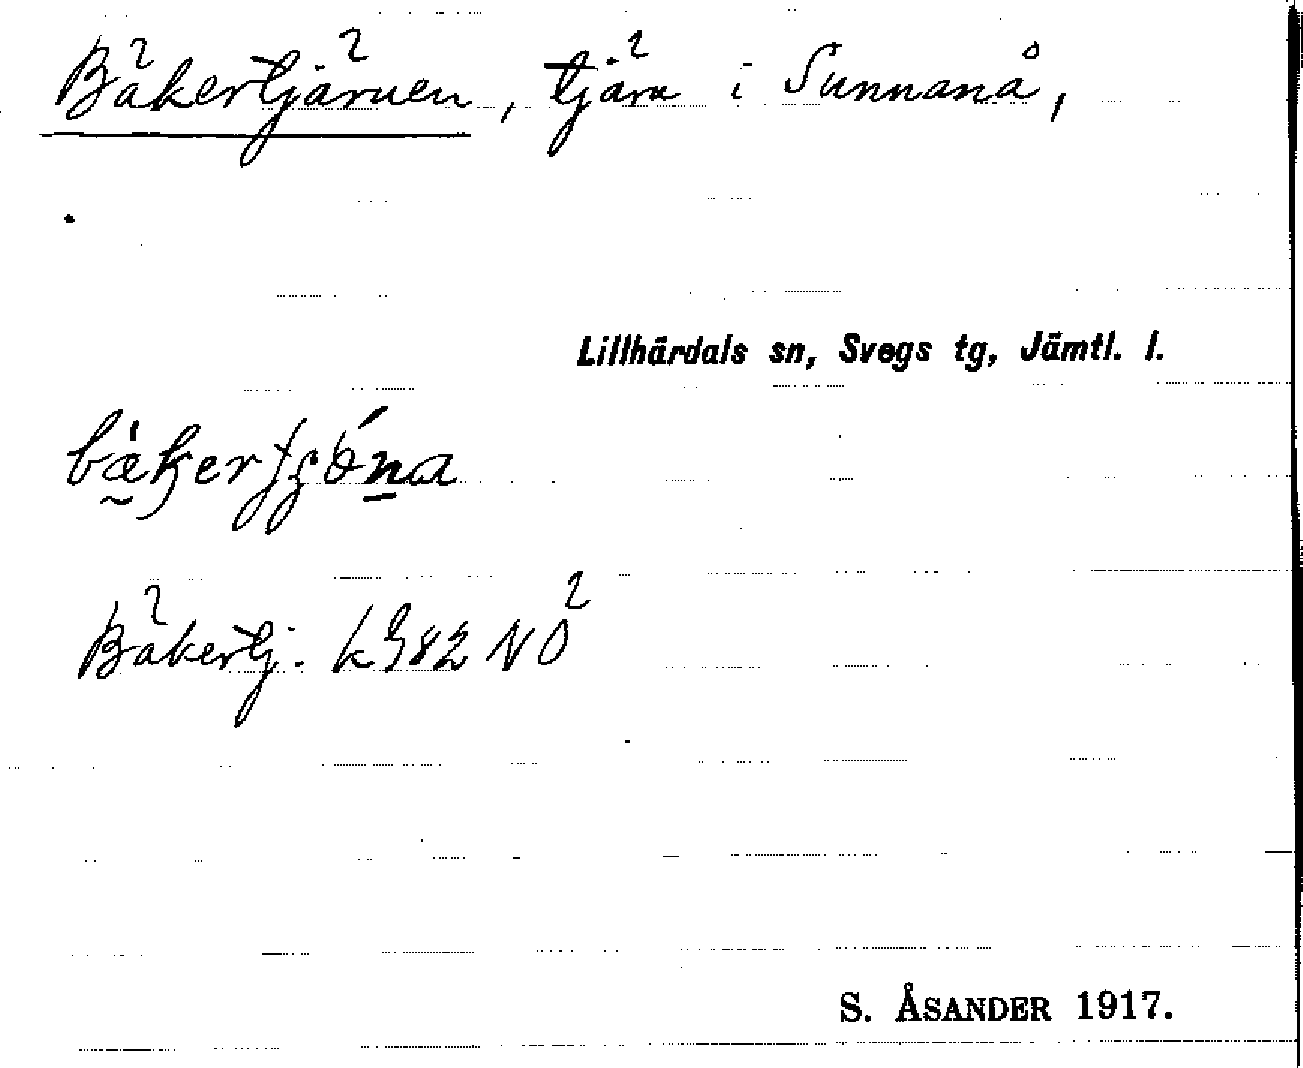 Bäkertjärnen, tjärn i Sunnanå,
Lillhärdals sn, Svegs tg, Jämtl. l.
Bäkertj. k982 NO²
S. ÅSANDER 1917.